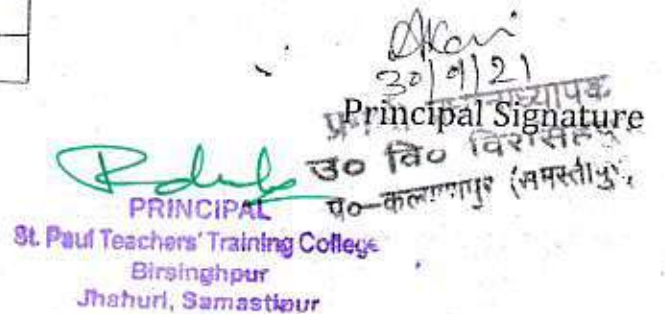 30/9/21
Principal Signature
उ० वि०
प०-कल्याणपुर (समस्तीपुर)
PRINCIPAL
St. Paul Teachers' Training College
Birsinghpur
Jhahuri, Samastipur